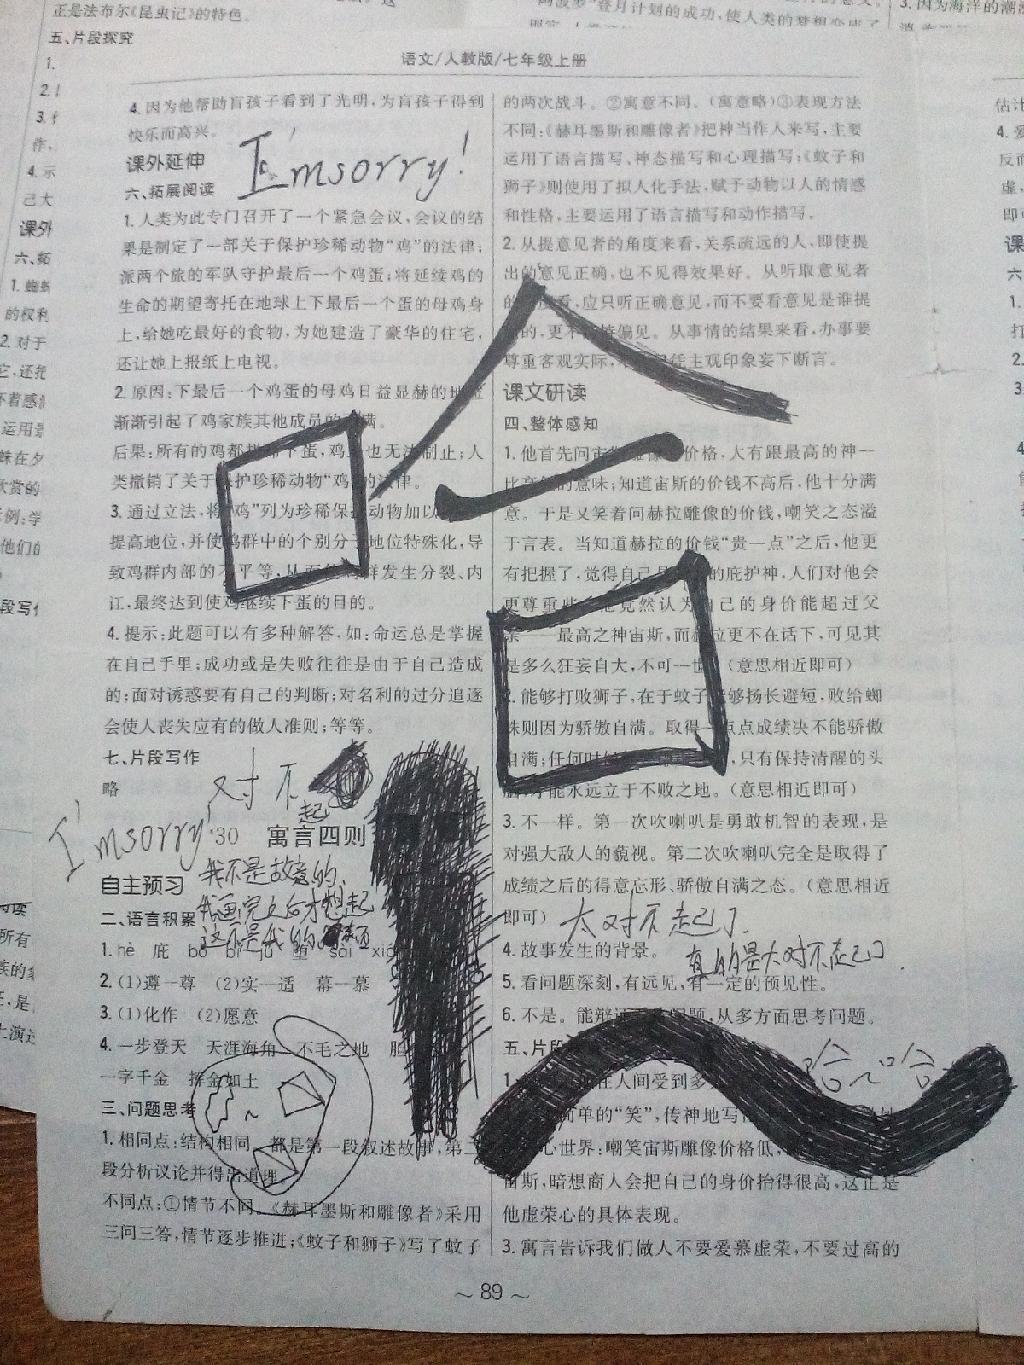 正是法布尔《昆虫记》的特色。
五、片段探究
语文/人教版/七年级上册
4. 因为他帮助盲孩子看到了光明,为盲孩子得到
快乐而高兴。
I'msorry!
课外延伸
六、拓展阅读
1. 人类为此专门召开了一个紧急会议,会议的结
果是制定了一部关于保护珍稀动物“鸡”的法律,
派两个旅的军队守护最后一个鸡蛋;将延续鸡的
生命的期望寄托在地球上下最后一个蛋的母鸡身
上,给她吃最好的食物,为她建造了豪华的住宅,
还让她上报纸上电视。
2. 原因:下最后一个鸡蛋的母鸡日益显赫的地
渐渐引起了鸡家族其他成员的 满。
后果:所有的鸡都 下蛋,鸡 也无法制止;人
类撤销了关于保护珍稀动物“鸡”的法律。
3. 通过立法,将“鸡”列为珍稀保 动物加以
提高地位,并使鸡群中的个别分子地位特殊化,导
致鸡群内部的不平等,从而 群发生分裂、内
江,最终达到使鸡继续下蛋的目的。
4. 提示:此题可以有多种解答,如:命运总是掌握
在自己手里;成功或是失败往往是由于自己造成
的;面对诱惑要有自己的判断;对名利的过分追逐
会使人丧失应有的做人准则;等等。
七、片段写作
略
对不
起
I'msorry!
30 寓言四则
我不是故意的,
自主预习
我画完之后才想起
二、语言积累
这不是我的
1. hè 庇 bó bì jù sài
2. (1)遵—尊 (2)实—适 幕—慕
3. (1)化作 (2)愿意
4. 一步登天 天涯海角 不毛之地
一字千金 挥金如土
三、问题思考
1. 相同点:结构相同,都是第一段叙述故事,第二
段分析议论并得出道理。
不同点:①情节不同。《赫耳墨斯和雕像者》采用
三问三答,情节逐步推进;《蚊子和狮子》写了蚊子
的两次战斗。②寓意不同。(寓意略)③表现方法
不同:《赫耳墨斯和雕像者》把神当作人来写,主要
运用了语言描写、神态描写和心理描写;《蚊子和
狮子》则使用了拟人化手法,赋予动物以人的情感
和性格,主要运用了语言描写和动作描写。
2. 从提意见者的角度来看,关系疏远的人,即使提
出的意见正确,也不见得效果好。从听取意见者
的 看,应只听正确意见,而不要看意见是谁提
的,更不 偏见。从事情的结果来看,办事要
尊重客观实际, 任主观印象妄下断言。
哈
课文研读
四、整体感知
1. 他首先问宙斯雕像 价格,大有跟最高的神一
比高 的意味;知道宙斯的价钱不高后,他十分满
意。于是又笑着问赫拉雕像的价钱,嘲笑之态溢
于言表。当知道赫拉的价钱“贵一点”之后,他更
有把握了,觉得自己是 的庇护神,人们对他会
更尊重些,他竟然认为自己的身价能超过父
亲——最高之神宙斯,而赫拉更不在话下,可见其
是多么狂妄自大,不可一世。(意思相近即可)
2. 能够打败狮子,在于蚊子能够扬长避短,败给蜘
蛛则因为骄傲自满。取得一点点成绩决不能骄傲
自满;任何时候 ,只有保持清醒的头
脑,才能永远立于不败之地。(意思相近即可)
3. 不一样。第一次吹喇叭是勇敢机智的表现,是
对强大敌人的藐视。第二次吹喇叭完全是取得了
成绩之后的得意忘形、骄傲自满之态。(意思相近
即可)
太对不起了
4. 故事发生的背景。
真的是太对不起了.
5. 看问题深刻,有远见,有一定的预见性。
6. 不是。能辩证 问题,从多方面思考问题。
五、片段
哈~哈
1. 在人间受到多
简单的“笑”,传神地写
心世界:嘲笑宙斯雕像价格低,
宙斯,暗想商人会把自己的身价抬得很高,这正是
他虚荣心的具体表现。
3. 寓言告诉我们做人不要爱慕虚荣,不要过高的
~ 89 ~